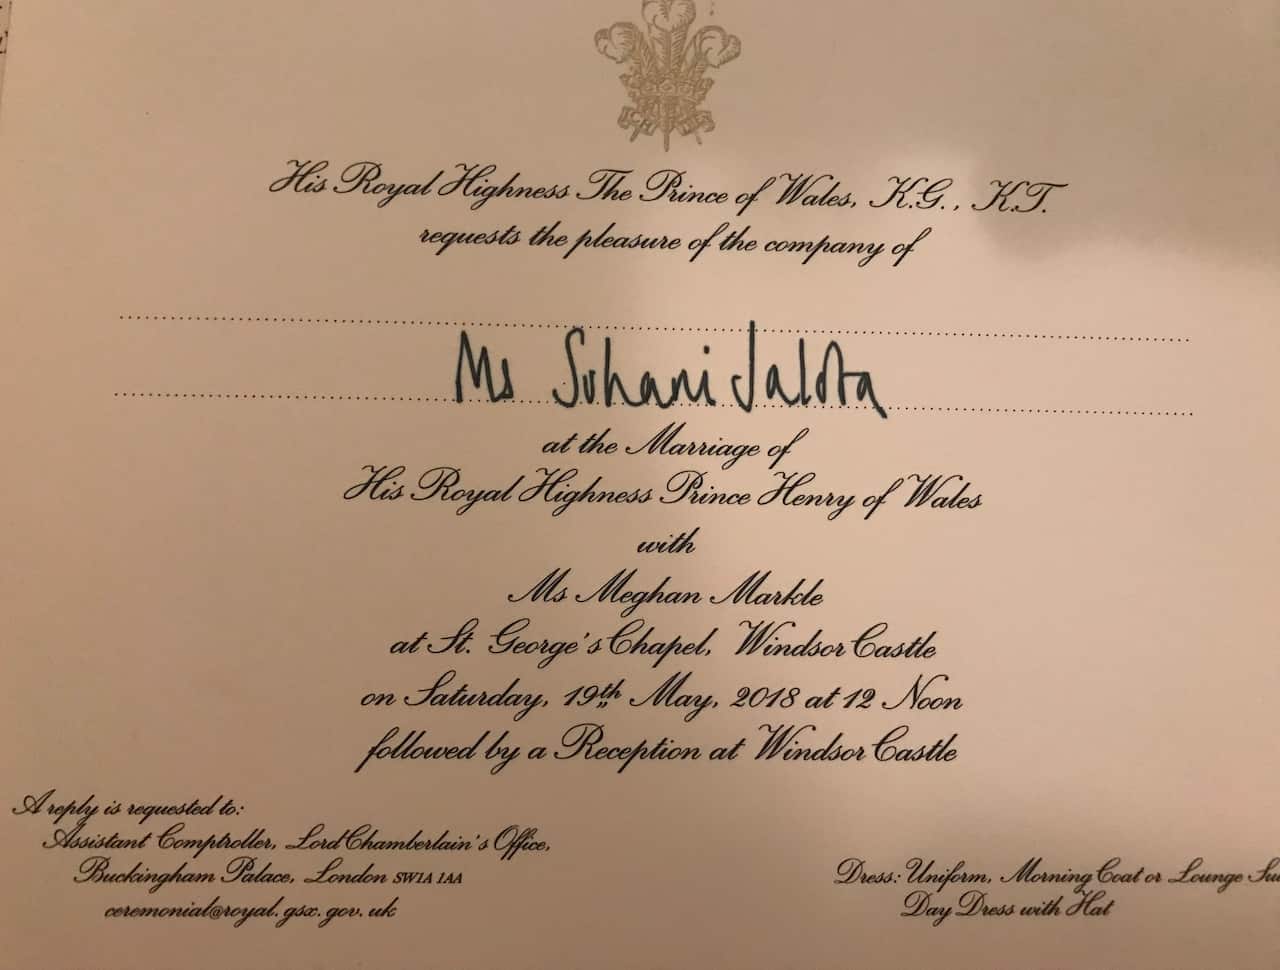 His Royal Highness The Prince of Wales, K.G., K.T.
requests the pleasure of the company of
Ms Suhani Jalota
at the Marriage of
His Royal Highness Prince Henry of Wales
with
Ms Meghan Markle
at St. George's Chapel, Windsor Castle
on Saturday, 19th May, 2018 at 12 Noon
followed by a Reception at Windsor Castle
A reply is requested to:
Assistant Comptroller, Lord Chamberlain's Office,
Buckingham Palace, London SW1A 1AA
ceremonial@royal.gsx.gov.uk
Dress: Uniform, Morning Coat or Lounge
Day Dress with Hat